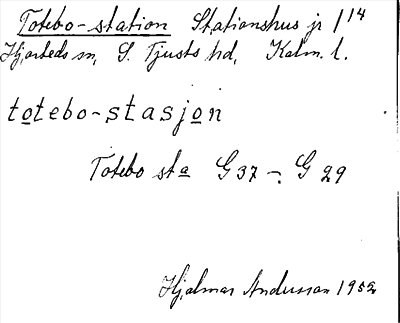 Totebo-station Stationshus jr 1¹⁴
Hjorteds sn, S. Tjusts hd, Kalm. l.
totebo-stasjon
Totebo sta G 37 - G 29
Hjalmar Andersson 1952